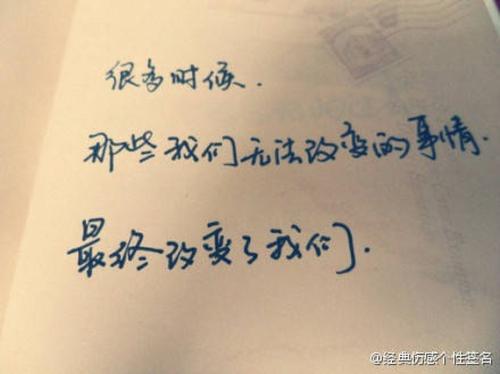 很多时候.
那些我们无法改变的事情.
最终改变了我们.
@经典伤感个性签名